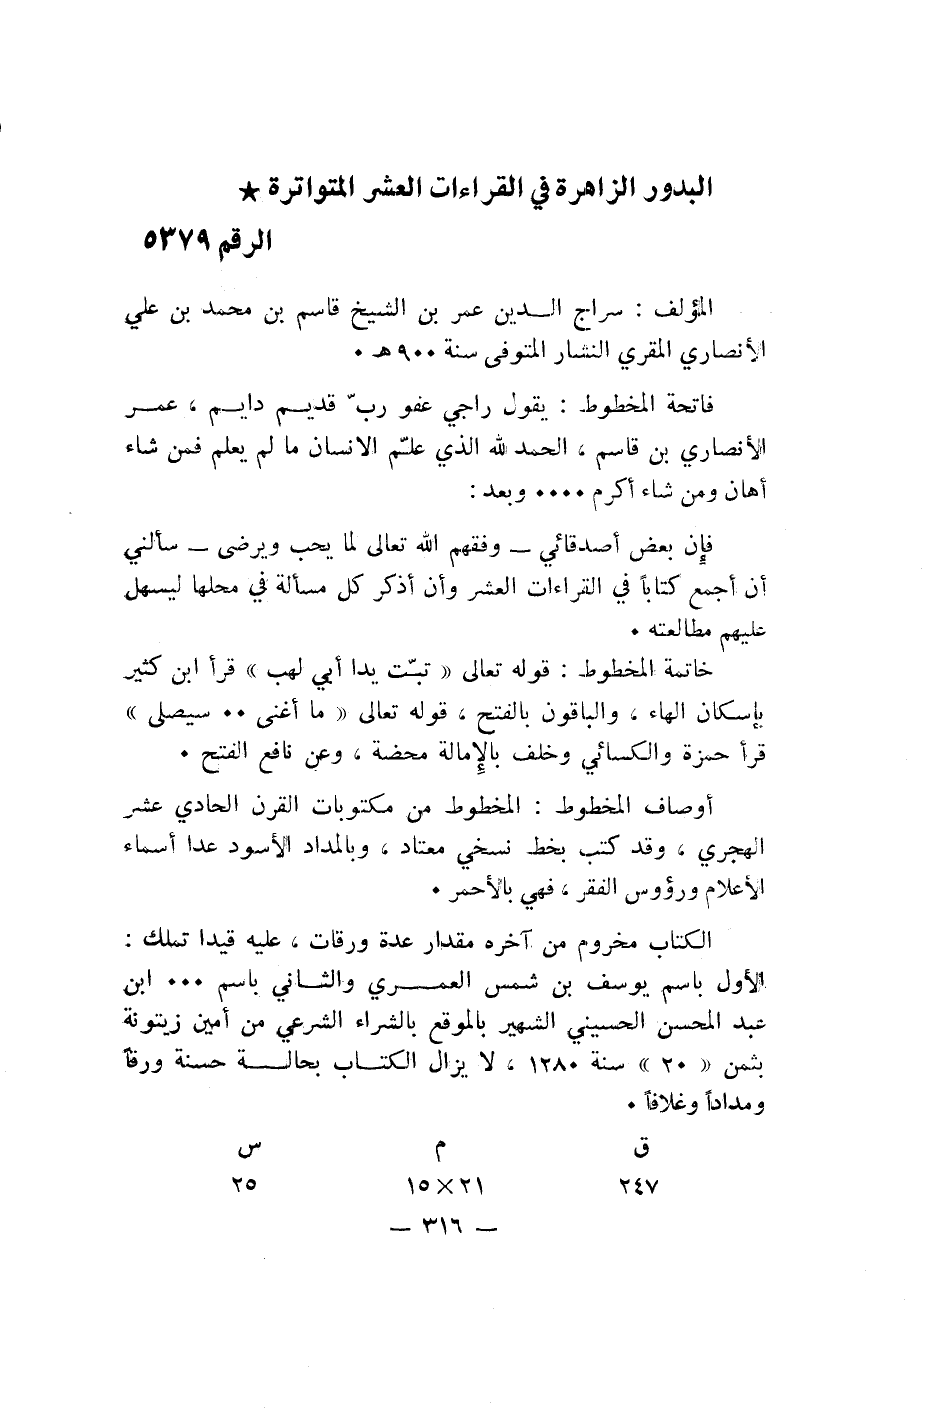 البدور الزاهرة في القراءات العشر المتواترة ★
الرقم ٥٣٧٩
المؤلف : سراج الـــدين عمر بن الشيخ قاسم بن محمد بن علي
الأنصاري المقري النشار المتوفى سنة ٩٠٠هـ ٠
فاتحة المخطوط : يقول راجي عفو ربّ قديـــم دايـــم ، عمـــر
الأنصاري بن قاسم ، الحمد لله الذي علّم الانسان ما لم يعلم فمن شاء
أهان ومن شاء أكرم ٠٠٠٠ وبعد :
فإن بعض أصدقائي ــ وفقهم الله تعالى لما يحب ويرضى ــ سألني
أن أجمع كتاباً في القراءات العشر وأن أذكر كل مسألة في محلها ليسهل
عليهم مطالعته ٠
خاتمة المخطوط : قوله تعالى « تبّت يدا أبي لهب » قرأ ابن كثير
بإسكان الهاء ، والباقون بالفتح ، قوله تعالى « ما أغنى ٠٠ سيصلى »
قرأ حمزة والكسائي وخلف بالإمالة محضة ، وعن نافع الفتح ٠
أوصاف المخطوط : المخطوط من مكتوبات القرن الحادي عشر
الهجري ، وقد كتب بخط نسخي معتاد ، وبالمداد الأسود عدا أسماء
الأعلام ورؤوس الفقر ، فهي بالأحمر ٠
الكتاب مخروم من آخره مقدار عدة ورقات ، عليه قيدا تملك :
الأول باسم يوسف بن شمس العمـــري والثـــاني باسم ٠٠٠ ابن
عبد المحسن الحسيني الشهير بالموقع بالشراء الشرعي من أمين زيتونة
بثمن « ٢٠ » سنة ١٢٨٠ ، لا يزال الكتـــاب بحالـــة حسنة ورقاً
ومداداً وغلافاً ٠
ق م س
٢٤٧ ٢١×١٥ ٢٥
— ٣١٦ —